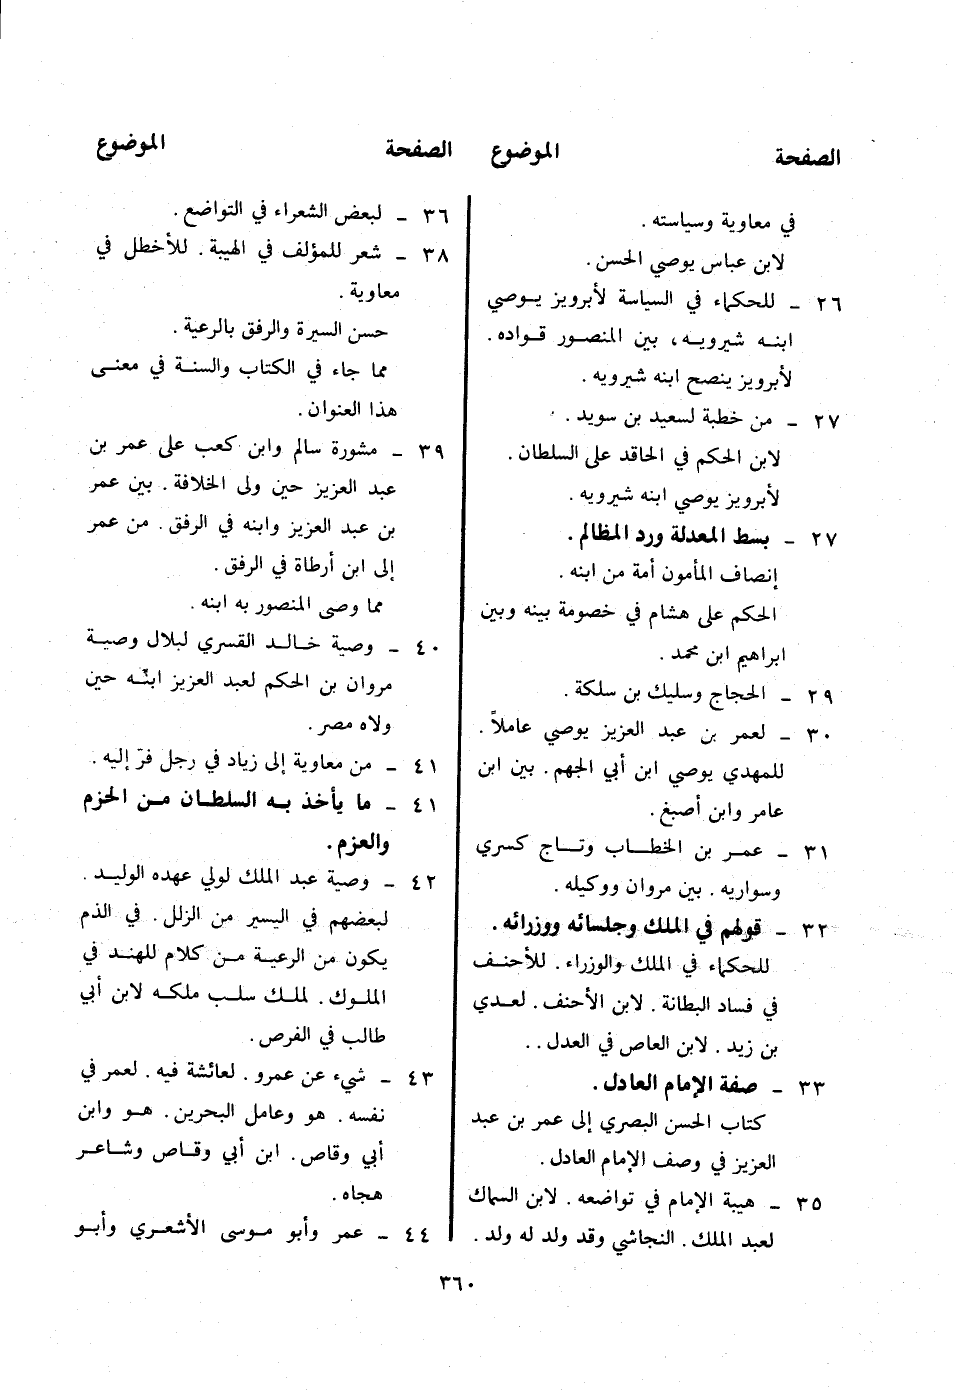 الصفحة الموضوع
في معاوية وسياسته .
لابن عباس يوصي الحسن .
٢٦ ـ للحكماء في السياسة لأبرويز يـوصي
ابنـه شيرويـه، بين المنصـور قـواده .
لأبرويز ينصح ابنه شيرويه .
٢٧ ـ من خطبة لسعيد بن سويد .
لابن الحكم في الحاقد على السلطان .
لأبرويز يوصي ابنه شيرويه .
٢٧ ـ بسط المعدلة ورد المظالم .
إنصاف المأمون أمة من ابنه .
الحكم على هشام في خصومة بينه وبين
ابراهيم ابن محمد .
٢٩ ـ الحجاج وسليك بن سلكة .
٣٠ ـ لعمر بن عبد العزيز يوصي عاملاً .
للمهدي يوصي ابن أبي الجهم . بين ابن
عامر وابن أصبغ .
٣١ ـ عمـر بن الخطـاب وتـاج كسري
وسواريه . بين مروان ووكيله .
٣٢ ـ قولهم في الملك وجلسائه ووزرائه .
للحكماء في الملك والوزراء . للأحنـف
في فساد البطانة . لابن الأحنف . لعـدي
بن زيد . لابن العاص في العدل . .
٣٣ ـ صفة الإمام العادل .
كتاب الحسن البصري إلى عمر بن عبد
العزيز في وصف الإمام العادل .
٣٥ ـ هيبة الإمام في تواضعه . لابن السماك
لعبد الملك . النجاشي وقد ولد له ولد .
الصفحة الموضوع
٣٦ ـ لبعض الشعراء في التواضع .
٣٨ ـ شعر للمؤلف في الهيبة . للأخطل في
معاوية .
حسن السيرة والرفق بالرعية .
مما جاء في الكتاب والسنـة في معنـى
هذا العنوان .
٣٩ ـ مشورة سالم وابن كعب على عمر بن
عبد العزيز حين ولى الخلافة . بين عمر
بن عبد العزيز وابنه في الرفق . من عمر
إلى ابن أرطاة في الرفق .
مما وصى المنصور به ابنه .
٤٠ ـ وصية خـالـد القسري لبلال وصيـة
مروان بن الحكم لعبد العزيز ابنّـه حين
ولاه مصر .
٤١ ـ من معاوية إلى زياد في رجل فرّ إليه .
٤١ ـ ما يأخذ بـه السلطـان مـن الحزم
والعزم .
٤٢ ـ وصية عبد الملك لولي عهده الوليـد .
لبعضهم في اليسير من الزلل . في الذم
يكون من الرعيـة مـن كلام للهنـد في
الملـوك . لملـك سلـب ملكـه لابن أبي
طالب في الفرص .
٤٣ ـ شيء عن عمرو . لعائشة فيه . لعمر في
نفسه . هو وعامل البحرين . هـو وابن
أبي وقاص . ابن أبي وقـاص وشـاعـر
هجاه .
٤٤ ـ عمر وأبو مـوسى الأشعـري وأبـو
٣٦٠